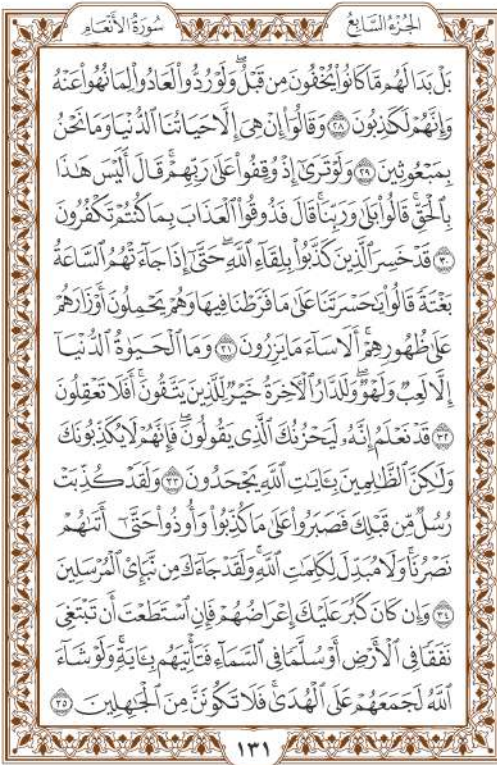 سُورَةُ الأَنْعَامِ
الجُزْءُ السَّابِعُ
بَلْ بَدَا لَهُم مَّا كَانُوا۟ يُخْفُونَ مِن قَبْلُ ۖ وَلَوْ رُدُّوا۟ لَعَادُوا۟ لِمَا نُهُوا۟ عَنْهُ
وَإِنَّهُمْ لَكَـٰذِبُونَ ٢٨ وَقَالُوٓا۟ إِنْ هِىَ إِلَّا حَيَاتُنَا ٱلدُّنْيَا وَمَا نَحْنُ
بِمَبْعُوثِينَ ٢٩ وَلَوْ تَرَىٰٓ إِذْ وُقِفُوا۟ عَلَىٰ رَبِّهِمْ ۚ قَالَ أَلَيْسَ هَـٰذَا
بِٱلْحَقِّ ۚ قَالُوا۟ بَلَىٰ وَرَبِّنَا ۚ قَالَ فَذُوقُوا۟ ٱلْعَذَابَ بِمَا كُنتُمْ تَكْفُرُونَ
٣٠ قَدْ خَسِرَ ٱلَّذِينَ كَذَّبُوا۟ بِلِقَآءِ ٱللَّهِ ۖ حَتَّىٰٓ إِذَا جَآءَتْهُمُ ٱلسَّاعَةُ
بَغْتَةً قَالُوا۟ يَـٰحَسْرَتَنَا عَلَىٰ مَا فَرَّطْنَا فِيهَا وَهُمْ يَحْمِلُونَ أَوْزَارَهُمْ
عَلَىٰ ظُهُورِهِمْ ۚ أَلَا سَآءَ مَا يَزِرُونَ ٣١ وَمَا ٱلْحَيَوٰةُ ٱلدُّنْيَآ
إِلَّا لَعِبٌ وَلَهْوٌ ۖ وَلَلدَّارُ ٱلْـَٔاخِرَةُ خَيْرٌ لِّلَّذِينَ يَتَّقُونَ ۗ أَفَلَا تَعْقِلُونَ
٣٢ قَدْ نَعْلَمُ إِنَّهُۥ لَيَحْزُنُكَ ٱلَّذِى يَقُولُونَ ۖ فَإِنَّهُمْ لَا يُكَذِّبُونَكَ
وَلَـٰكِنَّ ٱلظَّـٰلِمِينَ بِـَٔايَـٰتِ ٱللَّهِ يَجْحَدُونَ ٣٣ وَلَقَدْ كُذِّبَتْ
رُسُلٌ مِّن قَبْلِكَ فَصَبَرُوا۟ عَلَىٰ مَا كُذِّبُوا۟ وَأُوذُوا۟ حَتَّىٰٓ أَتَىٰهُمْ
نَصْرُنَا ۚ وَلَا مُبَدِّلَ لِكَلِمَـٰتِ ٱللَّهِ ۚ وَلَقَدْ جَآءَكَ مِن نَّبَإِى۟ ٱلْمُرْسَلِينَ
٣٤ وَإِن كَانَ كَبُرَ عَلَيْكَ إِعْرَاضُهُمْ فَإِنِ ٱسْتَطَعْتَ أَن تَبْتَغِىَ
نَفَقًا فِى ٱلْأَرْضِ أَوْ سُلَّمًا فِى ٱلسَّمَآءِ فَتَأْتِيَهُم بِـَٔايَةٍ ۚ وَلَوْ شَآءَ
ٱللَّهُ لَجَمَعَهُمْ عَلَى ٱلْهُدَىٰ ۚ فَلَا تَكُونَنَّ مِنَ ٱلْجَـٰهِلِينَ ٣٥
١٣١